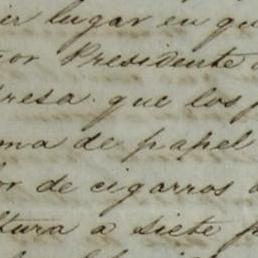 er lugar en qu
or Presidente
resa que los
ma de papel
or de cigarros
tura a siete